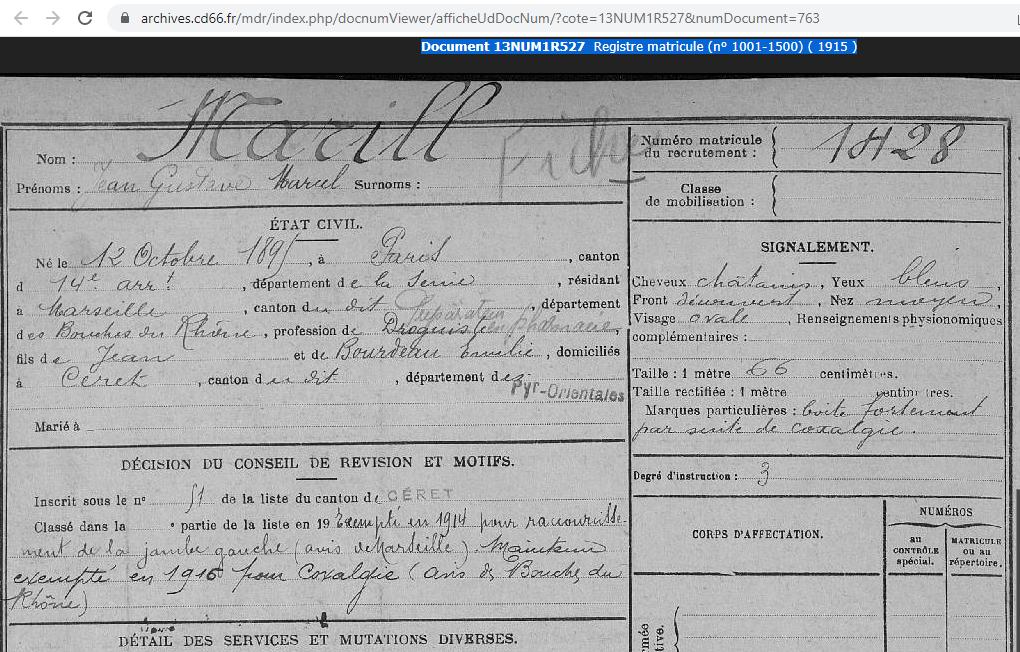 archives.cd66.fr/mdr/index.php/docnumViewer/afficheUdDocNum/?cote=13NUM1R527&numDocument=763
Document 13NUM1R527 Registre matricule (n° 1001-1500) ( 1915 )
Nom : Marill
Fiche
Prénoms : Jean Gustave Marcel Surnoms :
Numéro matricule du recrutement : 1428
Classe de mobilisation :
ÉTAT CIVIL.
Né le 12 Octobre 1895, à Paris, canton
d 14e arrt, département de la Seine, résidant
à Marseille, canton du dit, département
des Bouches du Rhône, profession de Droguiste Préparateur en pharmacie,
fils de Jean et de Bourdeau Emilie, domiciliés
à Céret, canton du dit, département des
Pyr-Orientales
Marié à
SIGNALEMENT.
Cheveux châtains, Yeux bleus,
Front découvert, Nez moyen,
Visage ovale, Renseignements physionomiques
complémentaires :
Taille : 1 mètre 66 centimètres.
Taille rectifiée : 1 mètre centimètres.
Marques particulières : boite fortement
par suite de coxalgie.
Degré d'instruction : 3
DÉCISION DU CONSEIL DE REVISION ET MOTIFS.
Inscrit sous le n° 51 de la liste du canton de CÉRET
Classé dans la e partie de la liste en 19 Exempté en 1914 pour raccourcisse-
ment de la jambe gauche (avis de Marseille). Maintenu
exempté en 1916 pour Coxalgie (avis des Bouches du
Rhône)
DÉTAIL DES SERVICES ET MUTATIONS DIVERSES.
CORPS D'AFFECTATION.
NUMÉROS
au CONTRÔLE spécial.
MATRICULE ou au répertoire.